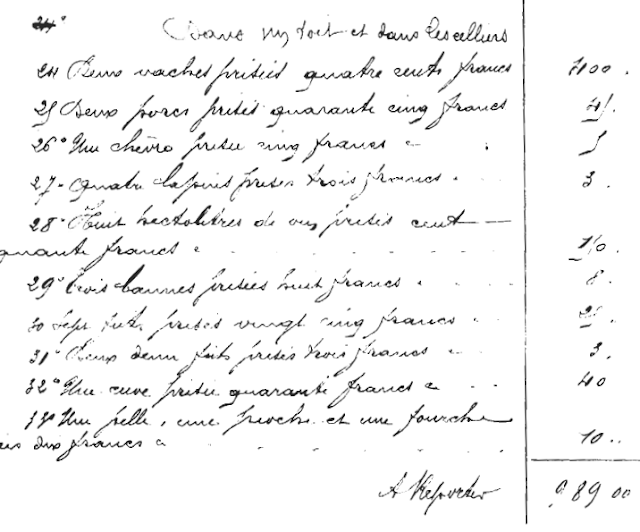 24°
Dans un toit et dans les celliers
24 Deux vaches prisées quatre cents francs 400.
25 Deux porcs prisés quarante cinq francs 45.
26° Une chèvre prisée cinq francs 5
27- Quatre lapins prisés trois francs 3.
28° Huit hectolitres de vin prisés cent —
quante francs 150.
29° Trois bannes prisées huit francs 8.
30 Sept fûts prisés vingt cinq francs 25.
31° Deux demi fûts prisés trois francs 3.
32° Une cuve prisée quarante francs 40
33° Une pelle, une pioche et une fourche
dix francs 10..
A Reporter